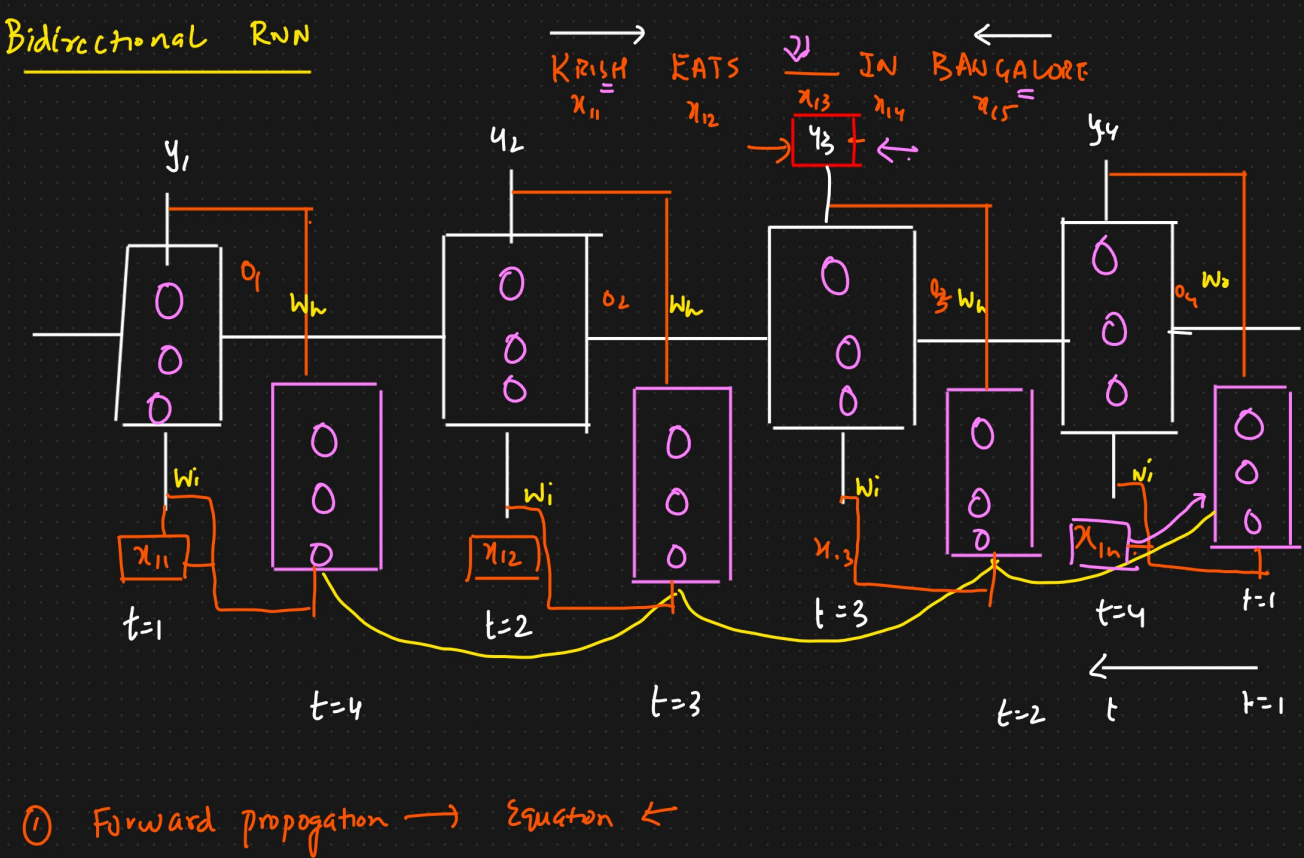 Bidirectional RNN
KRISH EATS ___ IN BANGALORE
x11 x12 x13 x14 x15
y1 y2 y3 y4
O1 Wh O2 Wh O3 Wh O4
Wi Wi Wi Wi
x11 x12 x13 x1n
t=1 t=2 t=3 t=4 t=1
t=4 t=3 t=2 t t=1
① Forward propogation → Equation ←